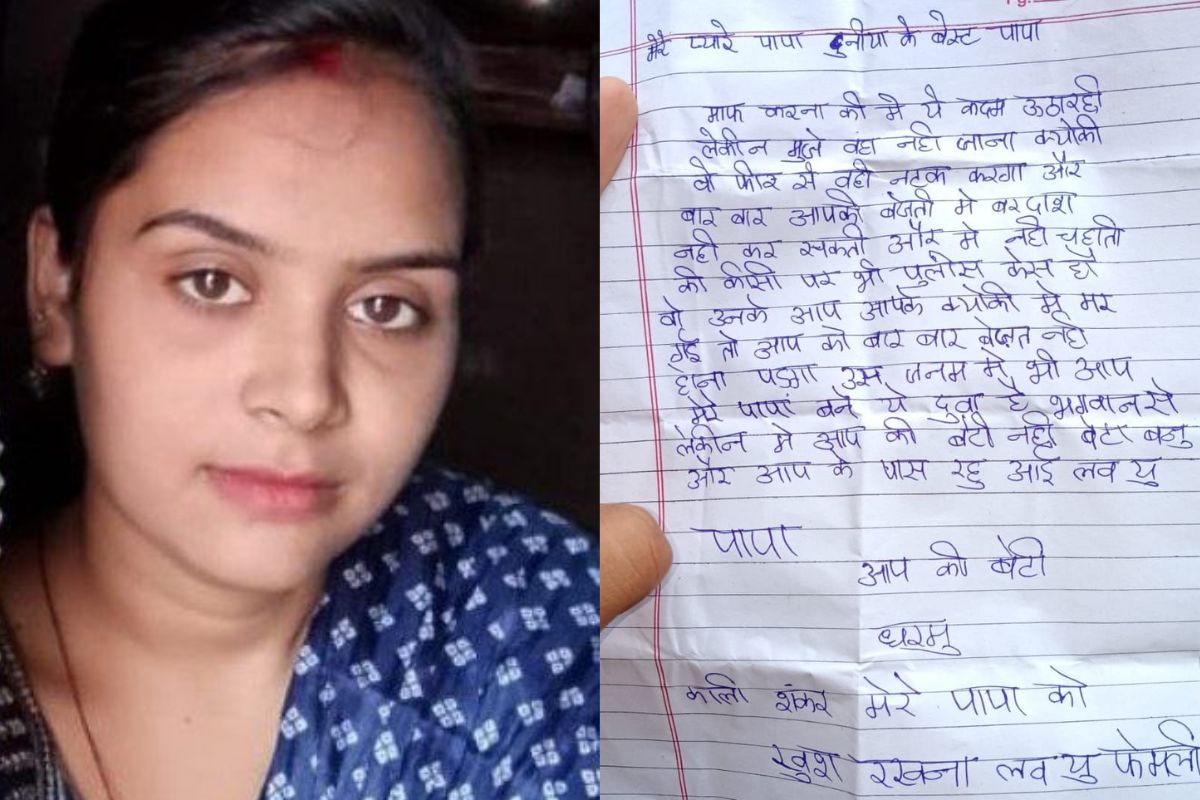 मेरे प्यारे पापा दुनीया के बेस्ट पापा
माफ करना की मे ये कदम उठारही
लेकीन मुजे वहा नही जाना क्योकी
वो फीर से वही नटक करगा और
बार बार आपकी बेजती मे बरदाश
नही कर सकती और मे नही चहाती
की कीसी पर भी पुलीस केस हो
वो उनके आप आपके क्योकी मे मर
गई तो आप को बार बार बेजत नही
होना पडगा उस जनम मे भी आप
मेरे पापा बने ये दुवा है भगवान से
लेकीन मे आप की बेटी नही बेटा बनु
और आप के पास रहु आई लव यु
पापा
आप की बेटी
धरमु
काली शंकर मेरे पापा को
खुश रखना लव यु फेमली